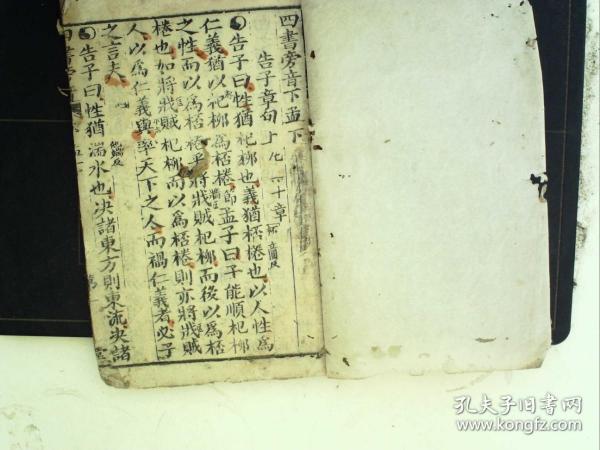 四書旁音下孟下
告子章句上凡二十章
告子曰性猶杞柳也義猶桮棬也以人性爲
仁義猶以杞柳爲桮棬節孟子曰子能順杞柳
之性而以爲桮棬乎將戕賊杞柳而後以爲桮
棬也如將戕賊杞柳而以爲桮棬則亦將戕賊
人以爲仁義與率天下之人而禍仁義者必子
之言夫
告子曰性猶湍水也决諸東方則東流决諸
孔夫子旧书网
www.kongfz.com